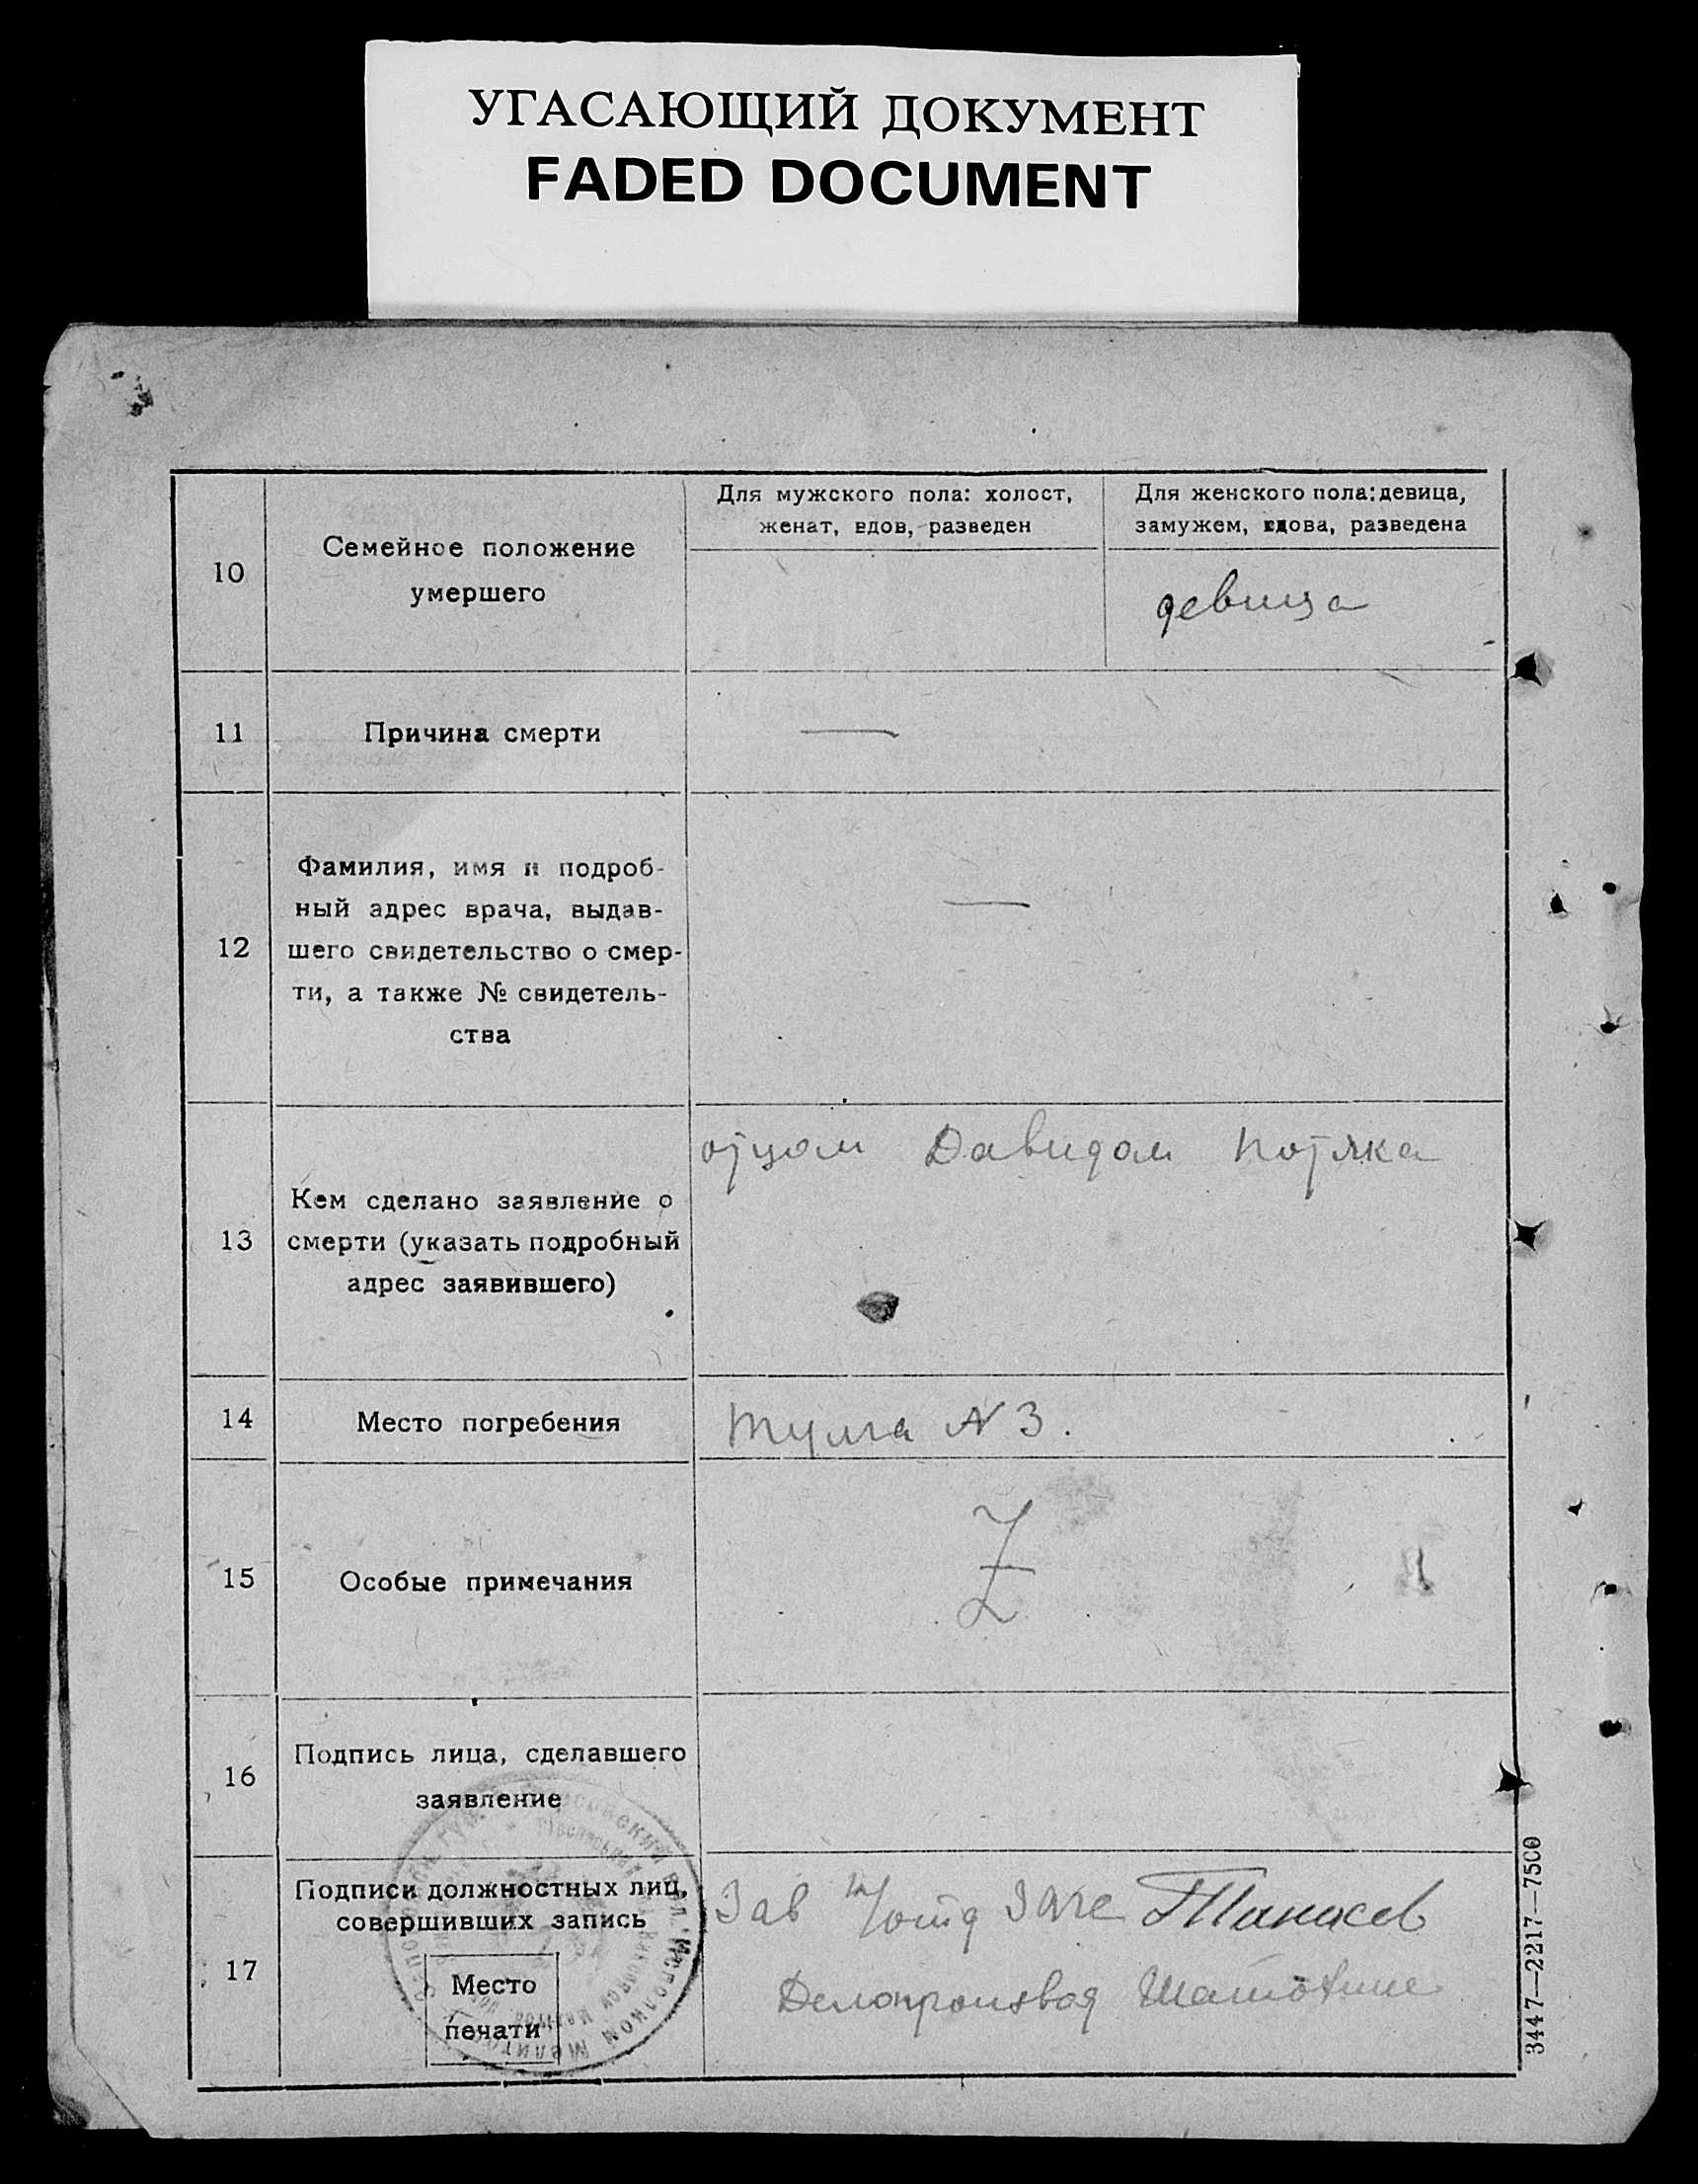 УГАСАЮЩИЙ ДОКУМЕНТ
FADED DOCUMENT
10
Семейное положение
умершего
Для мужского пола: холост,
женат, вдов, разведен
Для женского пола: девица,
замужем, вдова, разведена
девица
11
Причина смерти
—
12
Фамилия, имя и подроб-
ный адрес врача, выдав-
шего свидетельство о смер-
ти, а также № свидетель-
ства
—
13
Кем сделано заявление о
смерти (указать подробный
адрес заявившего)
отцом Давидом Потяка
14
Место погребения
N 3.
15
Особые примечания
Z
16
Подпись лица, сделавшего
заявление
17
Подписи должностных лиц,
совершивших запись
Место
печати
Зав
Делопроизвод
Исполком
3447—2217—7500